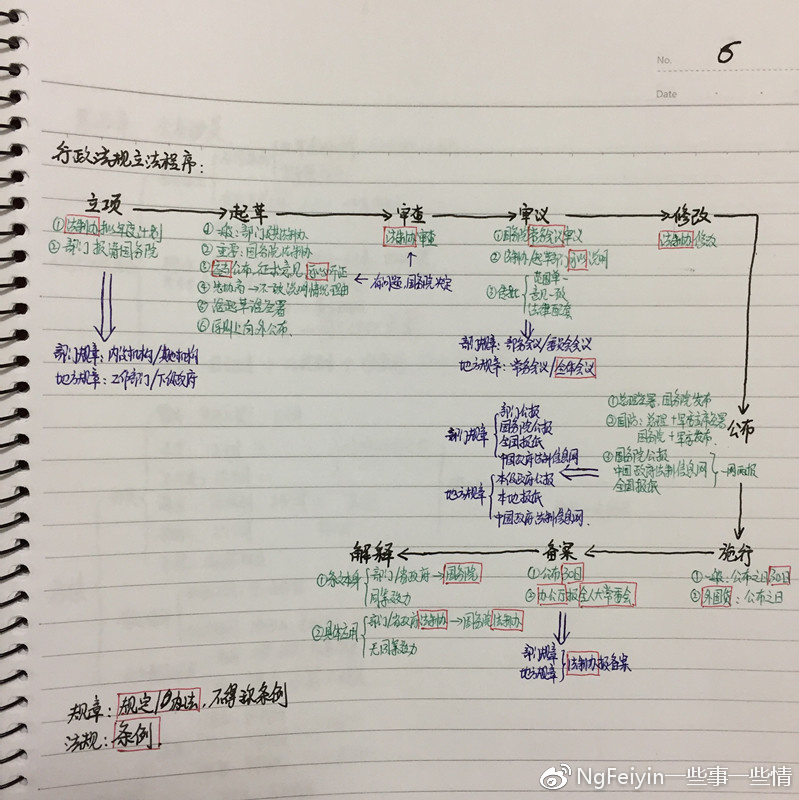 No. 6
Date
行政法规立法程序:
立项 起草 审查 审议 修改
①法制办拟年度计划
②部门报请国务院
①一般:部门或法制办
②重要:国务院法制办
③应当公布、征求意见,可以听证
④先协商→不一致,说明情况理由
⑤谁起草谁签署
⑥原则上向外公布.
法制办审查
有问题,国务院决定
①国务院常务会议审议
②法制办/起草部门可以说明
范围单一
意见一致
法律配套
法制办修改
部门规章:内设机构/其他机构
地方规章:工作部门/下级政府
部门规章:部务会议/委员会会议
地方规章:常务会议/全体会议
公布
①总理签署,国务院发布
②国防:总理+军委主席签署
国务院+军委发布.
③国务院公报
中国政府法制信息网
全国报纸
一网两报
部门规章
部门公报
国务院公报
全国报纸
中国政府法制信息网
地方规章
本级政府公报
本地报纸
中国政府法制信息网.
解释 备案 施行
①条文本身
部门/省政府→国务院
同等效力
②具体应用
部门/省政府法制办→国务院法制办
无同等效力
①公布30日
②办公厅报全人大常委会.
①一般:公布之日30日
②外国货:公布之日
部门规章
地方规章
法制办报备案
规章:规定/办法,不得称条例
法规:条例.
@NgFeiyin一些事一些情